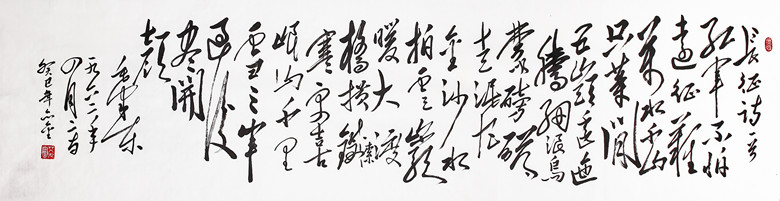 长征诗一首
红军不怕
远征難
萬水千山
只等闲
五岭逶迤
腾细浪乌
蒙磅礴
走泥丸
金沙水
拍云崖
暖大渡
橋横鐵索
寒更喜
岷山千里
雪三军
过後
尽開
颜
毛泽东
一九六二年
四月二十日
癸巳年